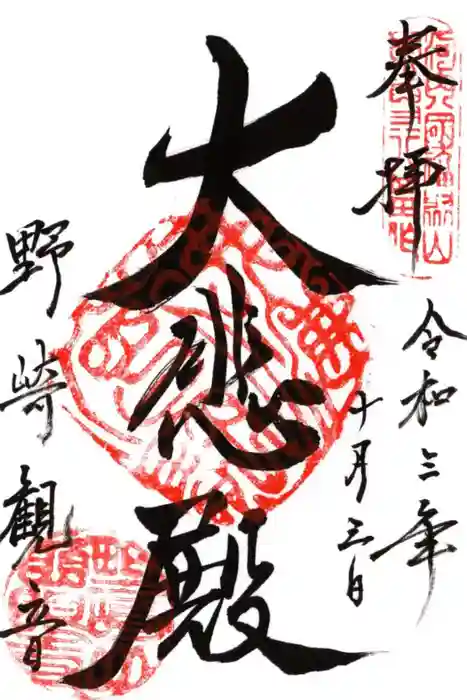 奉拝
令和三年
十月三日
大悲殿
野崎観音